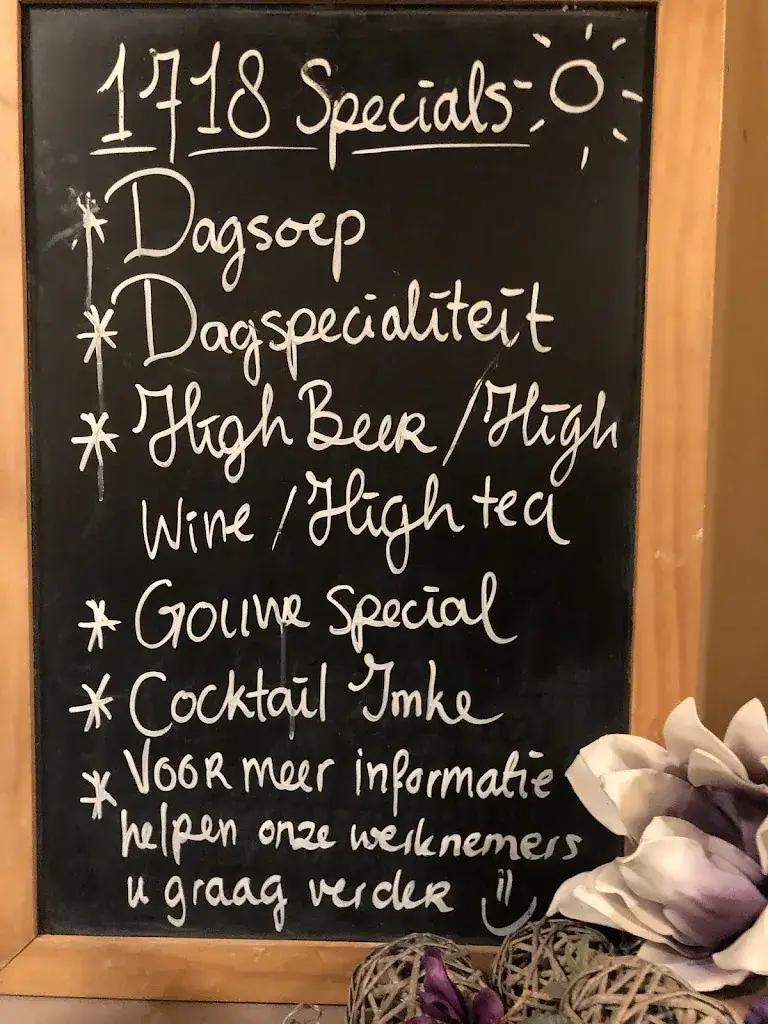 1718 Specials
* Dagsoep
* Dagspecialiteit
* High Beer / High
Wine / High tea
* Gouwe Special
* Cocktail Imke
* Voor meer informatie
helpen onze werknemers
u graag verder